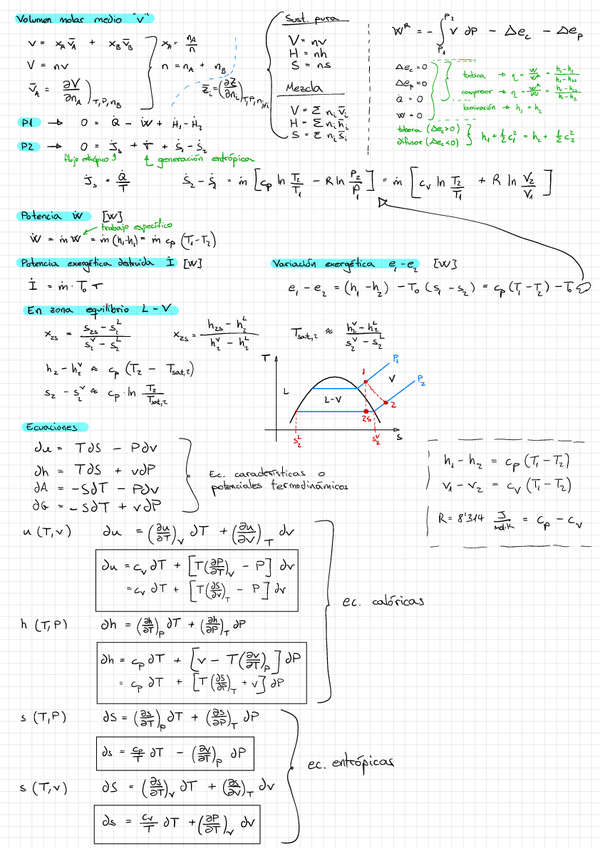 Volumen molar medio "v"
v = x_A v̄_A + x_B v̄_B
x_A = n_A / n
V = nv
n = n_A + n_B
v̄_A = ∂V/∂n_A )_T,P,n_B
z̄_i = (∂Z/∂n_i)_T,P,n_j≠i
Sust. pura
V = nv
H = nh
S = ns
Mezcla
V = Σ n_i v̄_i
H = Σ n_i h̄_i
S = Σ n_i s̄_i
W^R = - ∫_P1^P2 v ∂P - Δe_c - Δe_p
Δe_c = 0
Δe_p = 0
Q̇ = 0
Ẇ = 0
turbina → η =
compresor → η =
laminación → h_1 = h_2
tobera (Δe_c>0)
difusor (Δe_c<0)
h_1 + ½c_1² = h_2 + ½c_2²
P1 → 0 = Q̇ - Ẇ + Ḣ_1 - Ḣ_2
P2 → 0 = J̇_s + σ̇ + Ṡ_1 - Ṡ_2
flujo entrópico
generación entrópica
J̇_s = Q̇/T
Ṡ_2 - Ṡ_1 = ṁ [c_p ln T_2/T_1 - R ln P_2/P_1] = ṁ [c_v ln T_2/T_1 + R ln V_2/V_1]
Potencia Ẇ [W]
trabajo específico
Ẇ = ṁ w = ṁ (h_1-h_2) = ṁ c_p (T_1-T_2)
Potencia exergética destruida İ [W]
İ = ṁ · T_0 σ
Variación exergética e_1-e_2 [W]
e_1 - e_2 = (h_1 - h_2) - T_0 (s_1 - s_2) = c_p (T_1-T_2) - T_0
En zona equilibrio L-V
x_2s = (s_2s - s_2^L) / (s_2^V - s_2^L)
x_2s = (h_2s - h_2^L) / (h_2^V - h_2^L)
T_sat,2 ≈ (h_2^V - h_2^L) / (s_2^V - s_2^L)
h_2 - h_2^V ≈ c_p (T_2 - T_sat,2)
s_2 - s_2^V ≈ c_p · ln T_2/T_sat,2
T
P_1
P_2
L
L-V
V
1
2
2s
s_2^L
s_2^V
s
Ecuaciones
∂u = T∂S - P∂v
∂h = T∂S + v∂P
∂A = -S∂T - P∂v
∂G = -S∂T + v∂P
Ec. características o
potenciales termodinámicos
h_1 - h_2 = c_p (T_1-T_2)
v_1 - v_2 = c_v (T_1-T_2)
R = 8'314 J/mol·K = c_p - c_v
u (T,v) ∂u = (∂u/∂T)_v ∂T + (∂u/∂v)_T ∂v
∂u = c_v ∂T + [T(∂P/∂T)_v - P] ∂v
= c_v ∂T + [T(∂S/∂v)_T - P] ∂v
ec. calóricas
h (T,P) ∂h = (∂h/∂T)_P ∂T + (∂h/∂P)_T ∂P
∂h = c_p ∂T + [v - T(∂v/∂T)_P] ∂P
= c_p ∂T + [T(∂S/∂P)_T + v] ∂P
s (T,P) ∂S = (∂s/∂T)_P ∂T + (∂s/∂P)_T ∂P
∂s = c_p/T ∂T - (∂v/∂T)_P ∂P
ec. entrópicas
s (T,v) ∂S = (∂s/∂T)_v ∂T + (∂s/∂v)_T ∂v
∂s = c_v/T ∂T + (∂P/∂T)_v ∂v